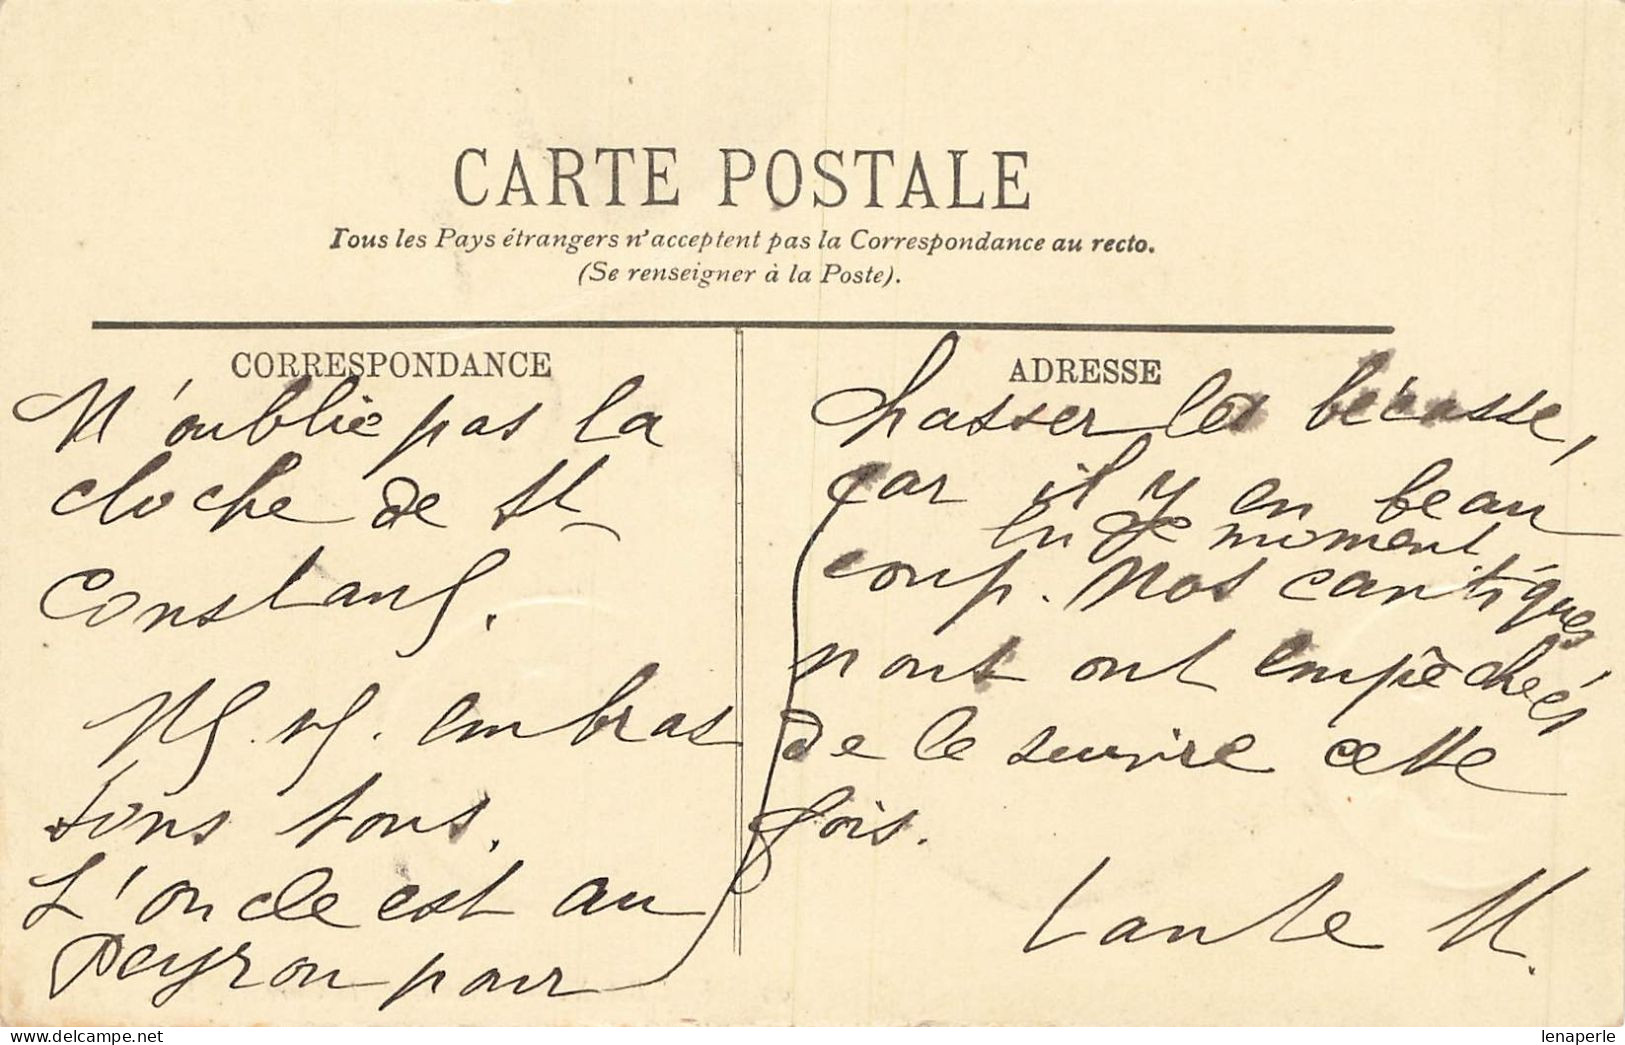 CARTE POSTALE
Tous les Pays étrangers n'acceptent pas la Correspondance au recto.
(Se renseigner à la Poste).
CORRESPONDANCE
N'oublie pas la
cloche de St
Constant.
embras
sons tous.
L'oncle est au
Peyron pour
ADRESSE
chasser la bécasse,
car il y en beau
en ce moment
coup. Nos cantiques
nous ont empêchées
de le suivre cette
fois.
tante M.
lenaperle